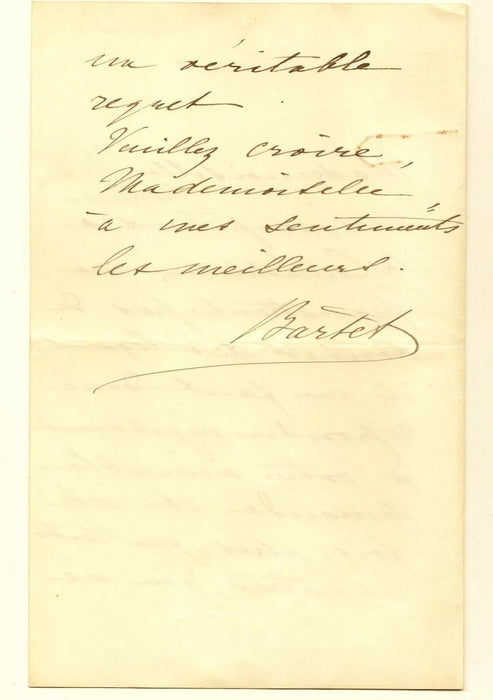 un véritable
regret.
Veuillez croire,
Mademoiselle
à mes sentiments
les meilleurs.
Bartet